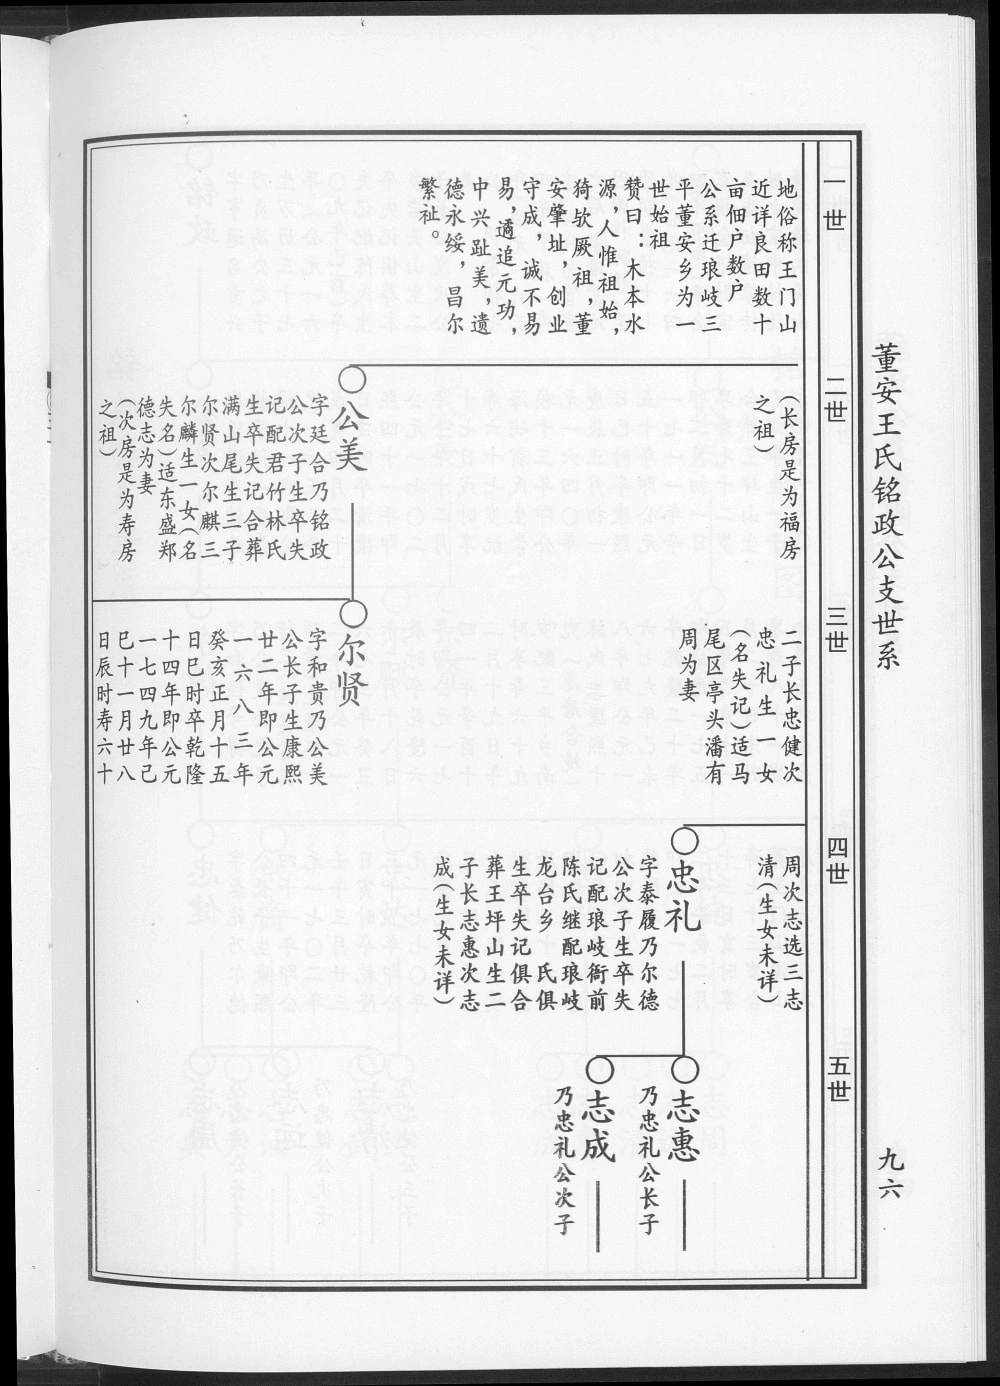 董安王氏铭政公支世系
九六
一世
地俗称王门山
近详良田数十
亩佃户数户
公系迁琅岐三
平董安乡为一
世始祖
赞曰：木本水
源，人惟祖始，
猗欤厥祖，董
安肇址，创业
守成，诚不易
易，遹追元功，
中兴趾美，遗
德永绥，昌尔
繁祉。
二世
（长房是为福房
之祖）
公美
字廷合乃铭政
公次子生卒失
记配君竹林氏
生卒失记合葬
满山尾生三子
尔贤次尔麒三
尔麟生一女（名
失名）适东盛郑
德志为妻
（次房是为寿房
之祖）
三世
二子长忠健次
忠礼生一女
（名失记）适马
尾区亭头潘有
周为妻
尔贤
字和贵乃公美
公长子生康熙
廿二年即公元
一六八三年
癸亥正月十五
日巳时卒乾隆
十四年即公元
一七四九年己
巳十一月廿八
日辰时寿六十
四世
周次志选三志
清（生女未详）
忠礼
字泰履乃尔德
公次子生卒失
记配琅岐衙前
陈氏继配琅岐
龙台乡　氏俱
生卒失记俱合
葬王坪山生二
子长志惠次志
成（生女未详）
五世
志惠
乃忠礼公长子
志成
乃忠礼公次子